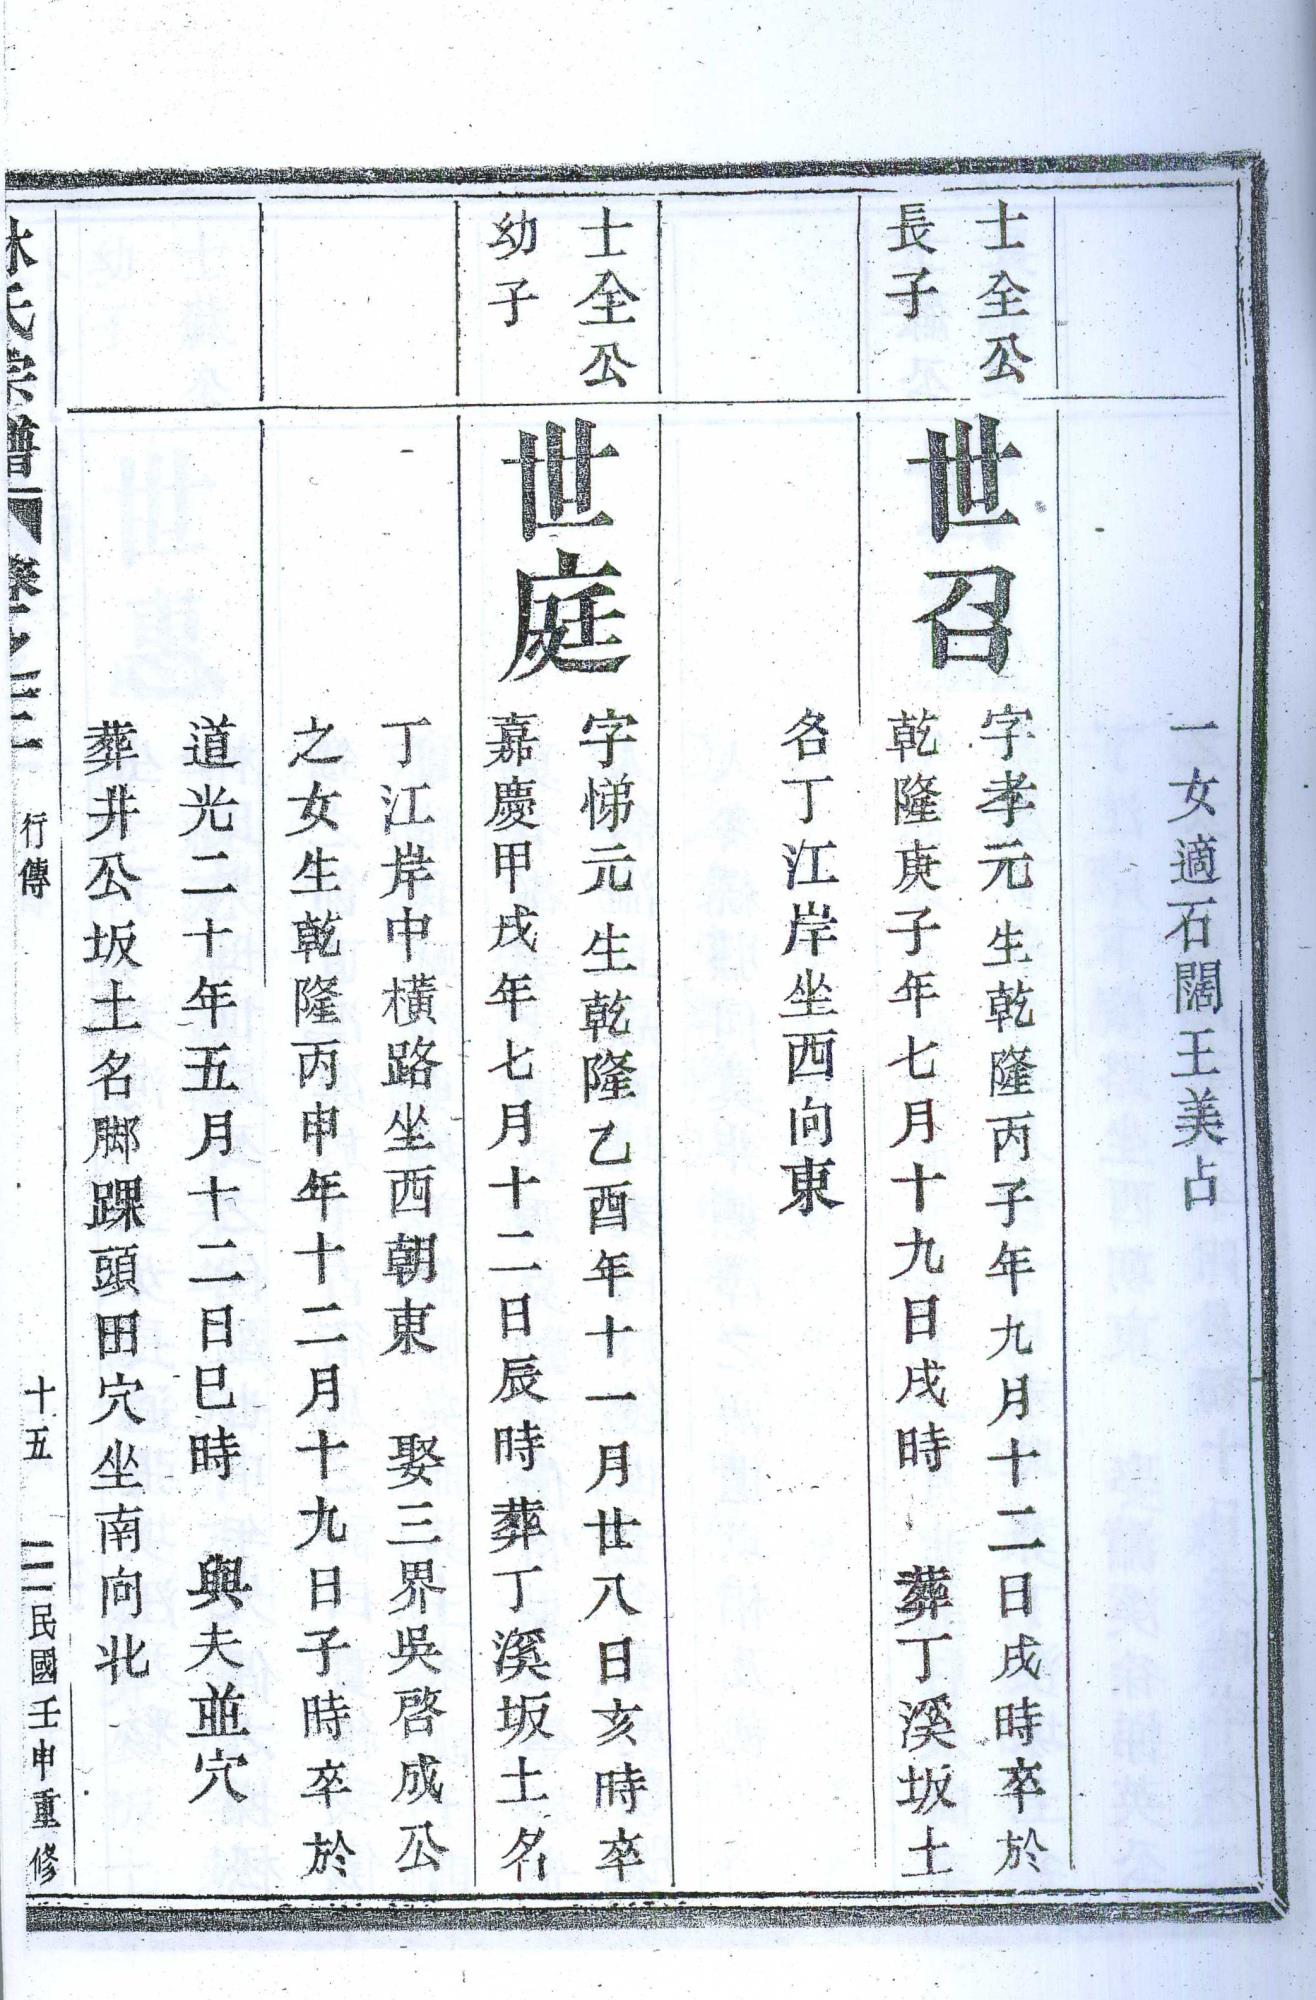 一女適石闊王美占
士全公
長子
世召
字孝元生乾隆丙子年九月十二日戌時卒於
乾隆庚子年七月十九日戌時 葬丁溪坂土
名丁江岸坐西向東
士全公
幼子
世庭
字悌元生乾隆乙酉年十一月廿八日亥時卒
嘉慶甲戌年七月十二日辰時葬丁溪坂土名
丁江岸中橫路坐西朝東 娶三界吳啓成公
之女生乾隆丙申年十二月十九日子時卒於
道光二十年五月十二日巳時 與夫並穴
葬井公坂土名脚踝頭田穴坐南向北
林氏宗譜 卷之三 行傳 十五 民國壬申重修